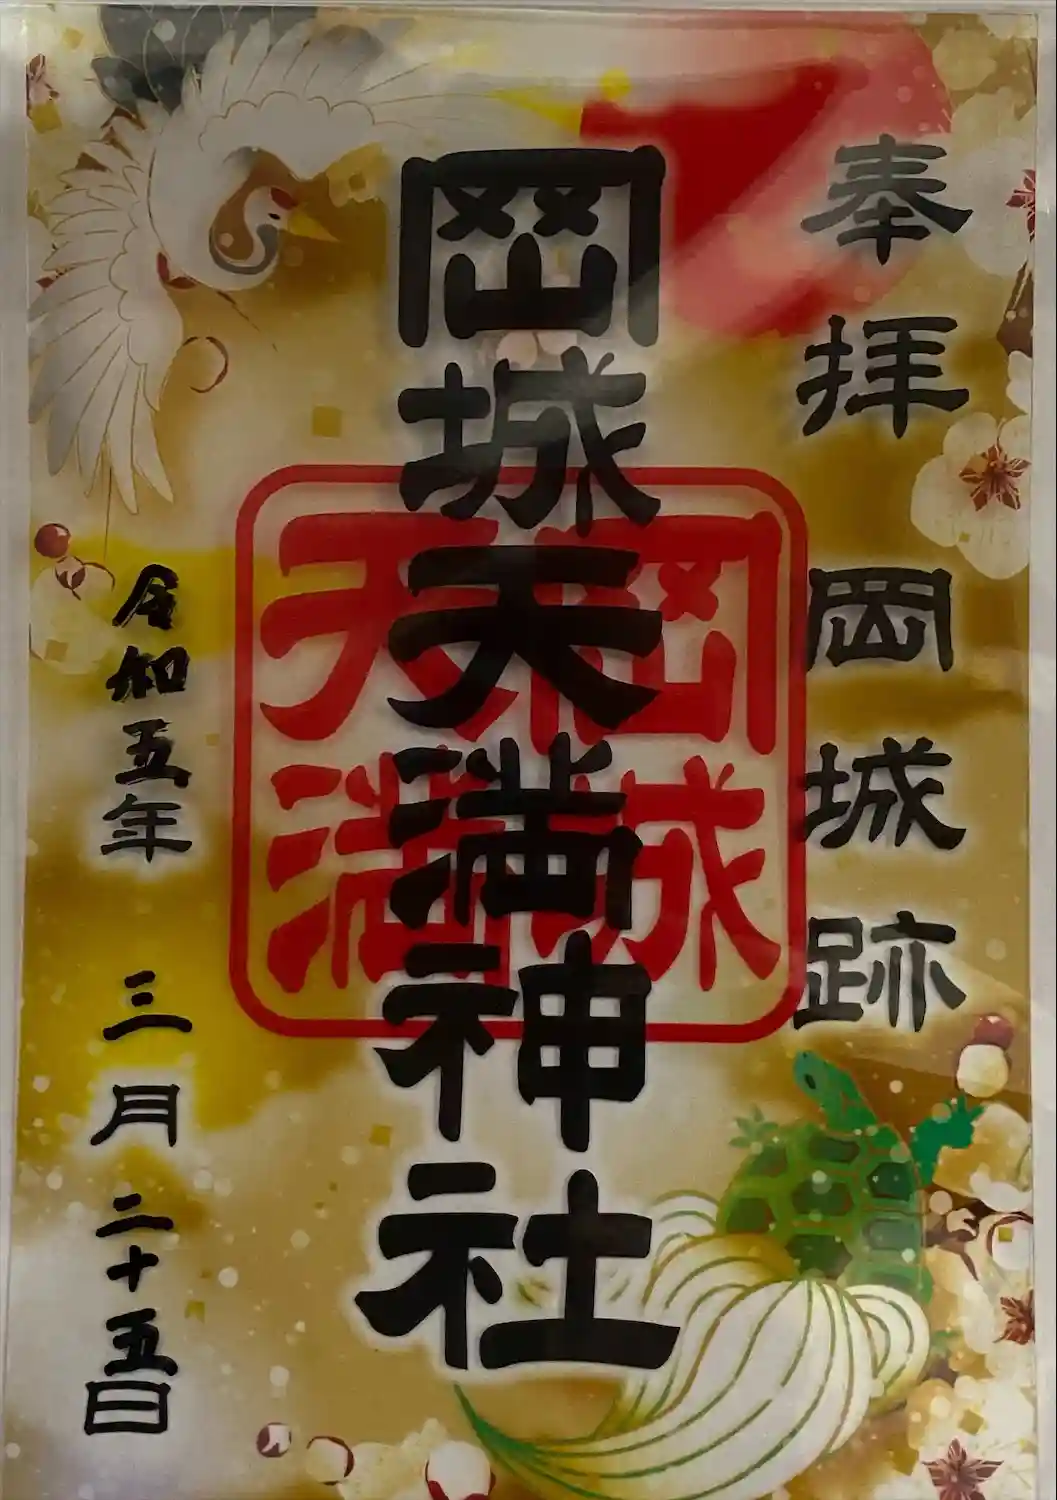 奉拝 岡城跡
岡城天満神社
岡城
天満
令和五年 三月二十五日